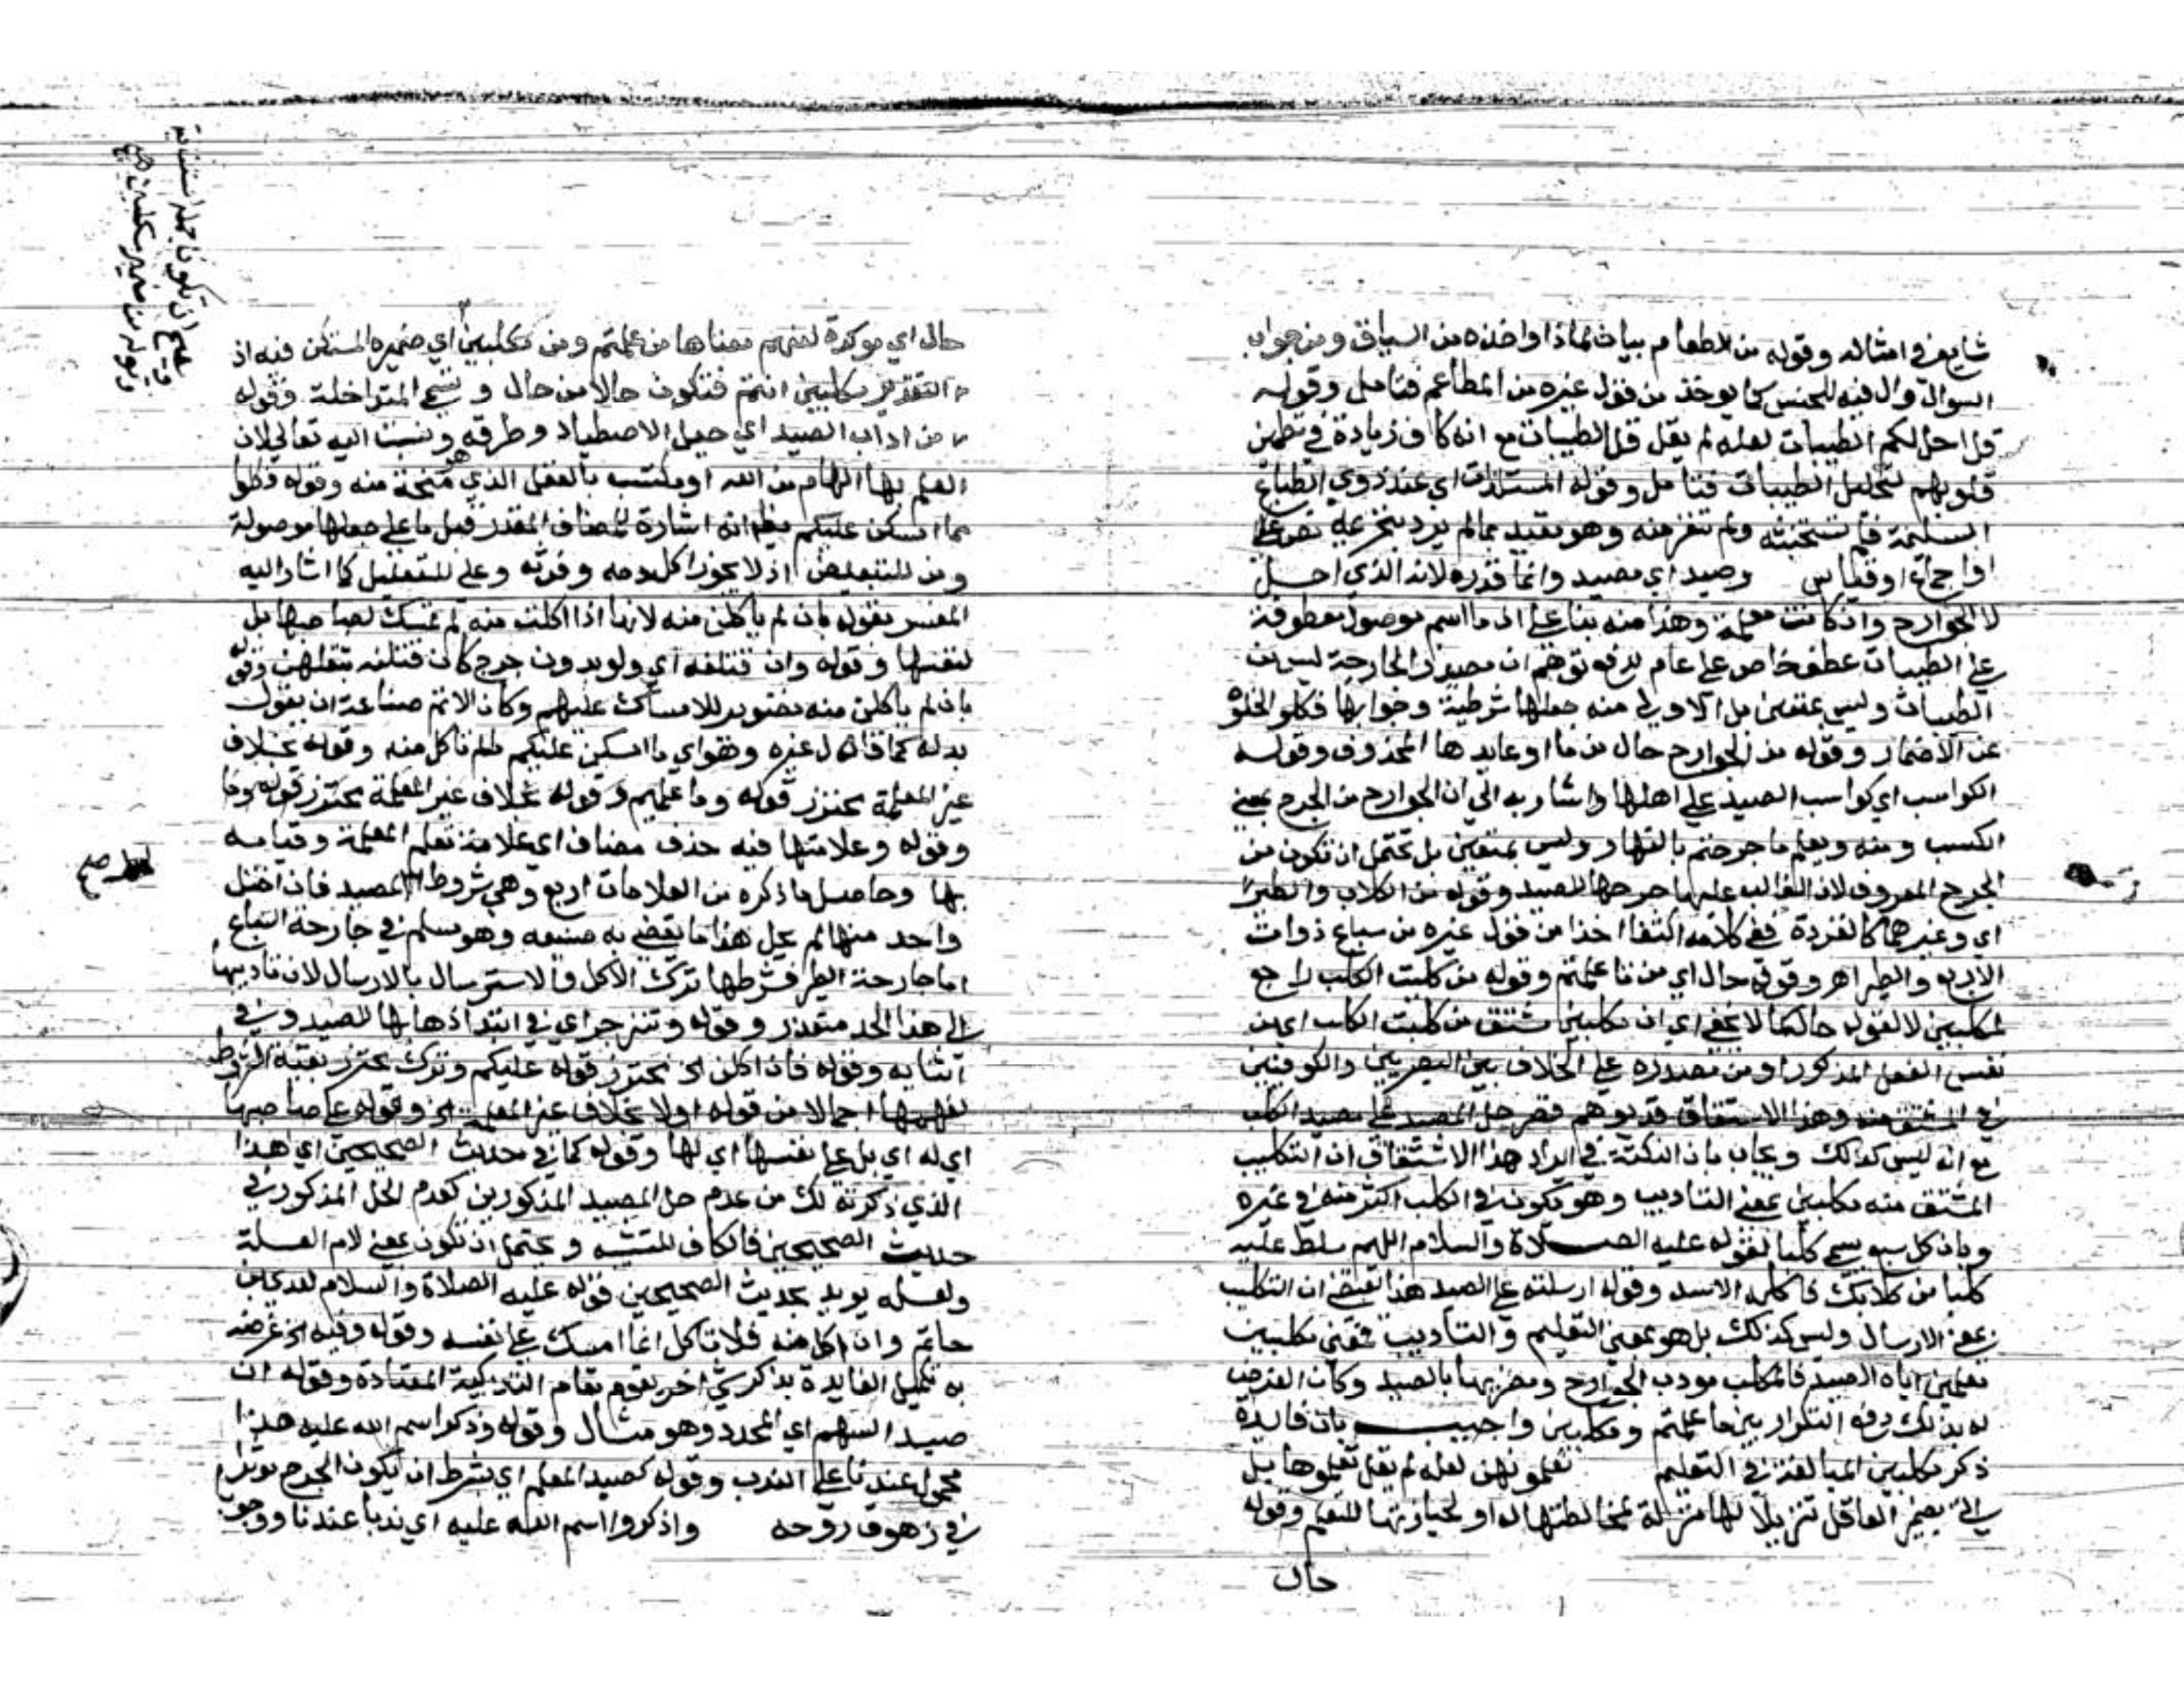 شايع في امثاله وقوله من الطعام بيان لماذا واخذه من السياق ومن جواب
السوال وال فيه للجنس كما يوخذ من قول غيره من المطاعم فتامل وقوله
قل احل لكم الطيبات لعله لم يقل قل الطيبات مع انه كاف زيادة في تطمين
قلوبهم بتحليل الطيبات فتامل وقوله المستلذات اي عند ذوي الطباع
السليمة فلم تستخبثه ولم تنفر منه وهو مقيد بما لم يرد بتحريمه نص
او اجماع او قياس وصيد اي مصيد وانما قدره لانه الذي احل
لا الجوارح وان كانت معلمة وهذا منه بناء على ان ما اسم موصول معطوفة
على الطيبات عطف خاص على عام لدفع توهم ان مصيد الجارحة ليس من
الطيبات وليس بمتعين بل الاولى منه جعلها شرطية وجوابها فكلوا لخلوه
عن الاضمار وقوله من الجوارح حال من ما او عايدها المحذوف وقوله
الكواسب اي كواسب الصيد على اهلها واشار به الى ان الجوارح من الجرح بمعنى
الكسب ومنه ويعلم ما جرحتم بالنهار وليس بمتعين بل يحتمل ان تكون من
الجرح المعروف لان الغالب عليها جرحها للصيد وقوله من الكلاب والطير
اي وغيرهما كالقردة ففي كلامه اكتفا اخذا من قول غيره من سباع ذوات
الاربع والطير اهـ وقوله حال اي من تا علمتم وقوله من كلبت الكلب راجع
لمكلبين لا لقوله حال كما لا يخفى اي ان مكلبين مشتق من كلبت الكلب اي من
نفس الفعل المذكور او من مصدره على الخلاف بين البصريين والكوفيين
في المشتق منه وهذا الاشتقاق قد يوهم قصر حل المصيد على مصيد الكلب
مع انه ليس كذلك ويجاب بان النكتة في ايراد هذا الاشتقاق ان التكليب
المشتق منه مكلبين بمعنى التاديب وهو يكون في الكلب اكثر منه في غيره
وبان كل سبع يسمى كلبا لقوله عليه الصلاة والسلام اللهم سلط عليه
كلبا من كلابك فاكله الاسد وقوله ارسلته على الصيد هذا يقتضي ان التكليب
بمعنى الارسال وليس كذلك بل هو بمعنى التعليم والتاديب فمعنى مكلبين
معلمين اياه الصيد فالمكلب مودب الجوارح ومضريها بالصيد وكان الغرض
له بذلك دفع التكرار بين ما علمتم ومكلبين واجيب بان فايدة
ذكر مكلبين المبالغة في التعليم تعلمونهن لعله لم يقل تعلموها بل
اتى بضمير العاقل تنزيلا لها منزلة لمخالطتها له او لحيازتها للتعلم وقوله
حال
حال اي موكدة لفهم معناها من علمتم ومن مكلبين اي ضميره المستكن فيه اذ
التقدير مكلبين انتم فتكون حالا من حال وتسمى المتداخلة وقوله
من اداب الصيد اي حيل الاصطياد وطرقه ونسبت اليه تعالى لان
العلم بها الهام من الله او مكتسب بالعقل الذي هو منحة منه وقوله فكلوا
مما امسكن عليكم انه اشارة للمضاف المقدر قبل ما على جعلها موصولة
ومن للتبعيض اذ لا يجوز اكل دمه وفرثه وعلى للتعليل كما اشار اليه
المفسر بقوله بان لم ياكلن منه لانها اذا اكلت منه لم تمسك لصاحبها بل
لنفسها وقوله وان قتلنه اي ولو بدون جرح كان قتلنه بثقلهن وقوله
بان لم ياكلن منه تصوير للامساك عليهم وكان الاتم صناعة ان يقول
بدله كما قاله غيره وهو اي ما امسكن عليكم ما لم تاكل منه وقوله بخلاف
غير المعلمة محترز قوله وما علمتم وقوله بخلاف غير المعلمة محترز قوله وما
وقوله وعلامتها فيه حذف مضاف اي علامة تعلم المعلمة وقيامه
بها وحاصل ما ذكره من العلامات اربع وهي شروط لحل المصيد فان اختل
واحد منها لم يحل هذا ما يقضي به صنيعه وهو مسلم في جارحة السباع
اما جارحة الطير فشرطها ترك الاكل والاسترسال بالارسال لان تاديبها
الى هذا الحد متعذر وقوله وتنزجر اي في ابتدا ذهابها للصيد وفي
اثنايه وقوله فان اكلن الخ محترز قوله عليكم وترك محترز بقية الشروط
لفهمها اجمالا من قوله اولا بخلاف غير المعلمة الخ وقوله على صاحبها
اي له اي بل على نفسها اي لها وقوله كما في حديث الصحيحين اي هذا
الذي ذكرته لك من عدم حل المصيد المذكورين كعدم الحل المذكور في
حديث الصحيحين فالكاف للتشبيه ويحتمل ان تكون بمعنى لام العلة
ولعله يريد بحديث الصحيحين قوله عليه الصلاة والسلام لعدي بن
حاتم وان اكل منه فلا تاكل انما امسك على نفسه وقوله وفيه الخ غرضه
به تكميل الفايدة بذكر شي اخر يقوم مقام التذكية المعتادة وقوله ان
صيد السهم اي المحدد وهو مثال وقوله وذكر اسم الله عليه هذا
محمول عندنا على الندب وقوله كصيد المعلم اي بشرط ان يكون الجرح موثرا
في زهوق روحه واذكروا اسم الله عليه اي ندبا عندنا ووجوبا
يصح ان تكونا جملة استينافية